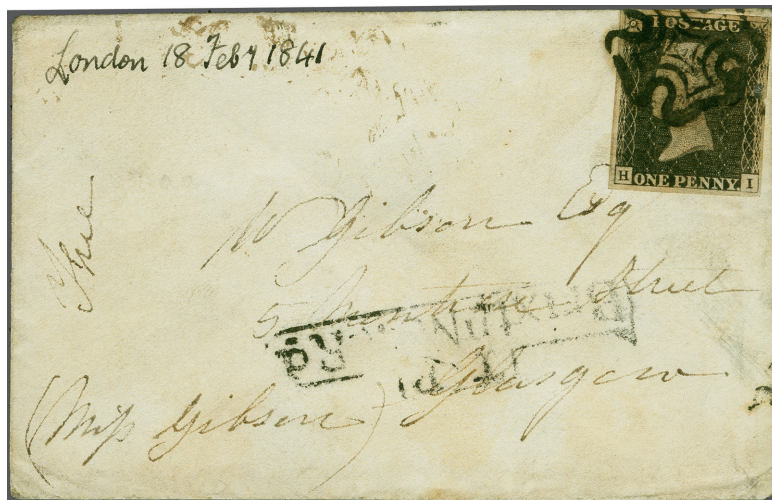 London 18 Feby 1841
POSTAGE
H ONE PENNY I
W Gibson Esq
5 Montrose Street
Glasgow
(Miss Gibson)